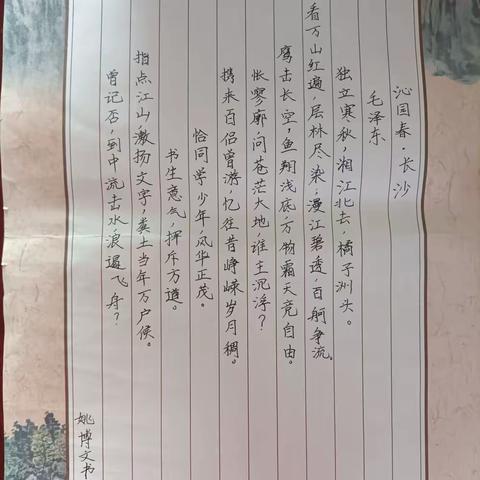 沁园春·长沙
毛泽东
独立寒秋,湘江北去,橘子洲头。
看万山红遍,层林尽染;漫江碧透,百舸争流。
鹰击长空,鱼翔浅底,万物霜天竞自由。
怅寥廓,问苍茫大地,谁主沉浮?
携来百侣曾游,忆往昔峥嵘岁月稠。
恰同学少年,风华正茂。
书生意气,挥斥方遒。
指点江山,激扬文字,粪土当年万户侯。
曾记否,到中流击水,浪遏飞舟?
姚博文书